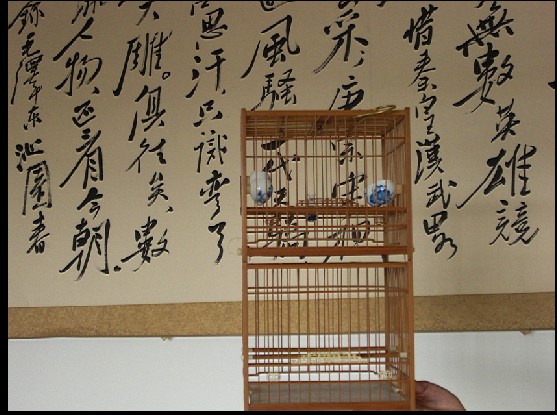 無數英雄競
惜秦皇漢武略
采、唐宗宋祖
風騷一代天驕
思汗、只識彎弓
大雕。俱往矣、數
人物、還看今朝
錄毛澤東沁園春